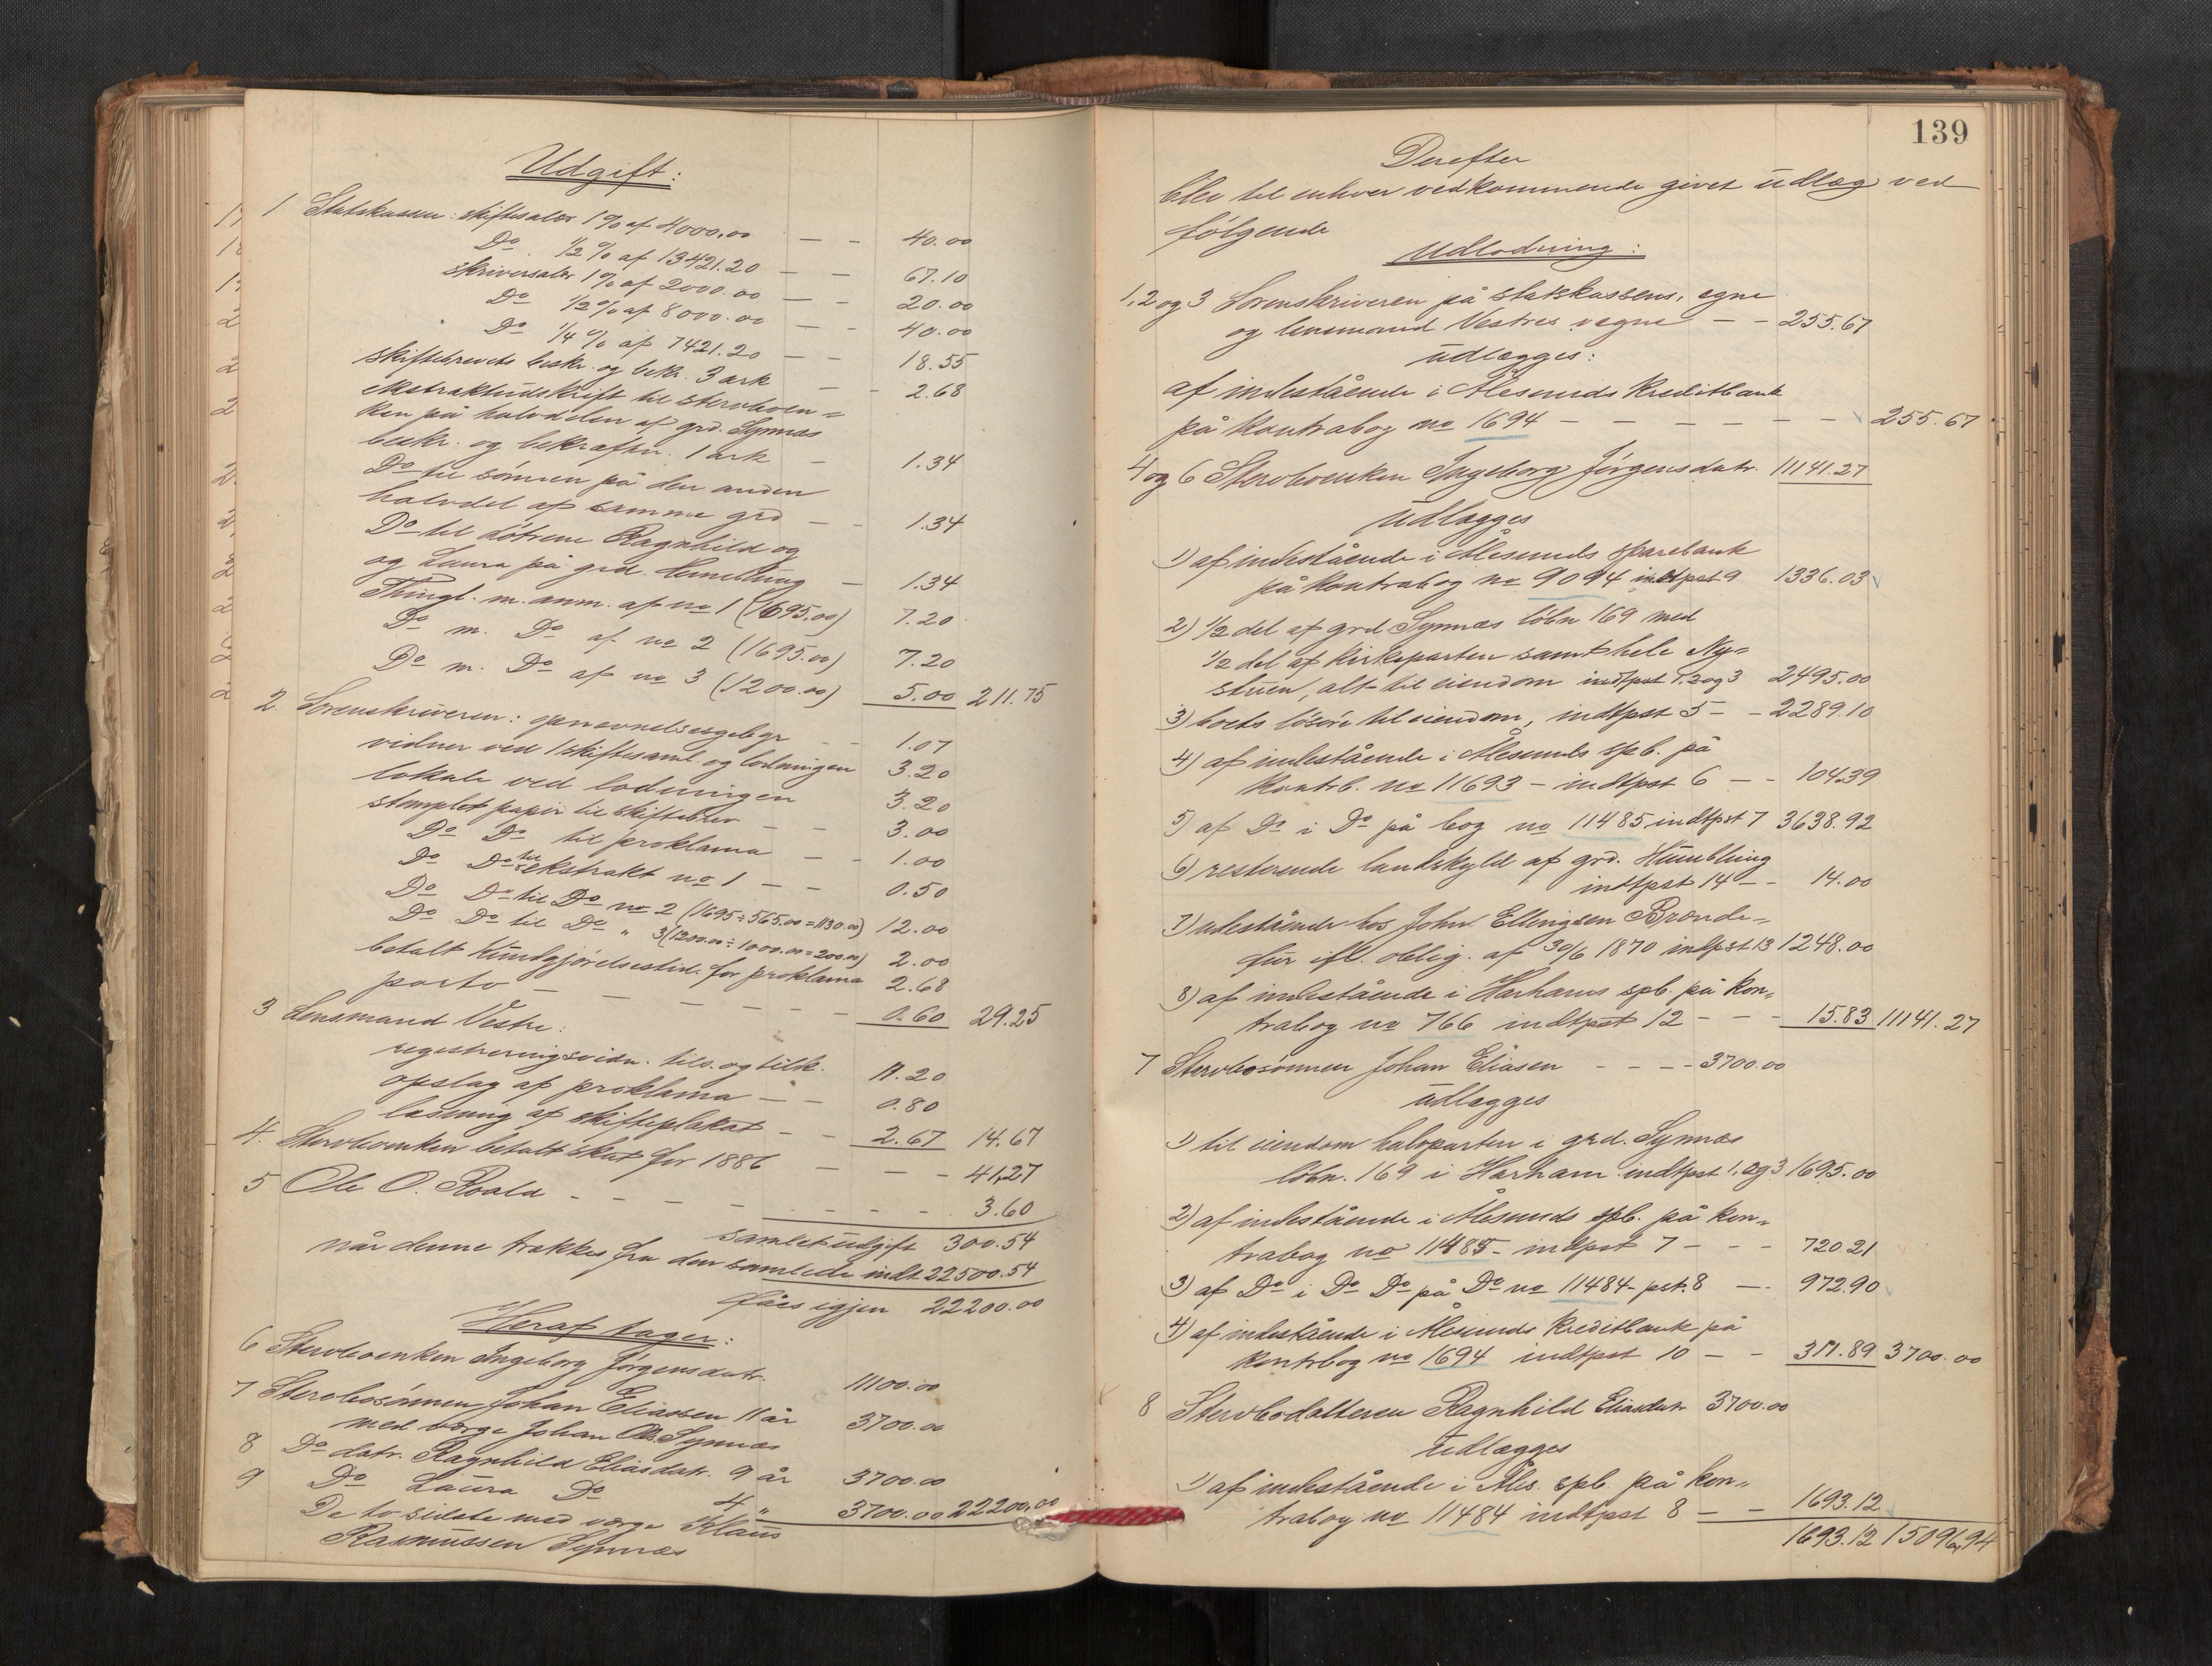 Udgift:
1 Statskassen: skiftesalær 1% af 4000.00 — – 40.00
Do. ½% af 13421.20 — — 67.10
skriversalær 1% af 2000.00 — — 20.00
Do ½% af 8000.00 — — 40.00
Do ¼% af 7421.20 — — 18.55
skiftebrevets beskr. og bekr. 3 ark — – 2.68
ekstraktudskrift til stervboen=
ken på halvdelen af grd. Synnæs
beskr. og bekræftn. 1 ark – 1.34
Do til sönnen på den anden
halvdel af samme grd — – 1.34
Do til døtrene Ragnhild og
og Laura på grd. Humblung — 1.34
Thingl. m. anm. af no 1 (1695.00) 7.20
Do m. Do af no 2 (1695.00) 7.20
Do m. Do af no 3 (1200.00) 5.00 211.75
2. Sorenskriveren: opnævnelsesgebyr — – 1.07
vidner ved 1 skiftesaml. og lodningen 3.20
lokale ved lodningen 3.20
stemplet papir til skiftebrev — – 3.00
Do Do til proklama — – 1.00
Do Do til ekstrakt no 1 — – 0.50
Do Do til Do no 2 (1695÷565.00=1130.00) 12.00
Do Do til Do " 3 (1200.00÷1000.00=200.00) 2.00
betalt Kundgjörelsestid. for proklama 2.68
porto — — — — — 0.60 29.25
3 Lensmand Vestre:
registreringsvidn. tils. og tilk. 11.20
opslag af proklama — – 0.80
læsning af skifteplakat – – 2.67 14.67
4. Stervboenken betalt skat for 1886 — — – 41,27
5 Ole O. Roald – – – – – – – 3.60
samlet udgift 300.54
når denne trækkes fra den samlede indt 22500.54
fåes igjen 22200.00
Heraf tager:
6 Stervboenken Ingeborg Jørgensdatr. 11100.00
7 Stervbosönnen Johan Eliassen 11 år 3700.00
med værge Johan Ols. Synnæs
8 Do datr. Ragnhild Eliasdatr. 9 år 3700.00
9 Do Laura Do 4 " 3700.00 22200.00
De to sidste med værge Klaus
Rasmussen Synnæs
139
Derefter
blev til enhver vedkommende givet udlæg ved
følgende
Udlodning:
1, 2 og 3 Sorenskriveren på statskassens, egne
og lensmand Vestres vegne – – 255.67
udlægges:
af indestående i Ålesunds Kreditbank
på kontrabog no 1694 – – – – – – 255.67
4 og 6 Stervboenken Ingeborg Jörgensdatr. 11141.27
udlægges
1) af indestående i Ålesunds sparebank
på kontrabog no 9094 indtpst 9 1336.03
2) ½ del af grd. Synnæs löbn 169 med
½ del af Kirkeparten samt hele Ny=
stuen, alt til eiendom indtpst 1.2 og 3 2495.00
3) boets lösöre til eiendom, indtpst 5 – – 2289.10
4) af indestående i Ålesunds spb. på
kontrb. no 11693 – indtpst 6 – – 104.39
5) af Do i Do på bog no 11485 indtpst 7 3638.92
6) resterende landskyld af grd. Humblung
indtpst 14 – – 14.00
7) udestående hos John Ellingsen Brænde=
fur ifl. oblig. af 30/6 1870 indtpst 13 1248.00
8) af indestående i Harhams spb. på kon=
trabog no 766 indtpst 12 – – – 15.83 11141.27
7 Stervbosönnen Johan Eliasen – – – – 3700.00
udlægges
1) til eiendom halvparten i grd. Synnæs
löbn. 169 i Harham indtpst 1, og 3 1695.00
2) af indestående i Ålesunds spb. på kon=
trabog no 11485 – indtpst 7 – – – 720.21
3) af Do i Do Do på Do no 11484 – pst. 8 — 972.90
4) af indestående i Ålesunds Kreditbank på
kontrbog no 1694 indtpst 10 – – 311.89 3700.00
8 Stervbodatteren Ragnhild Eliasdatr 3700.00
udlægges
1) af indestående i Åles. spb. på kon=
trabog no 11484 indtpst 8 – – 1693.12
1693.12 15096,94